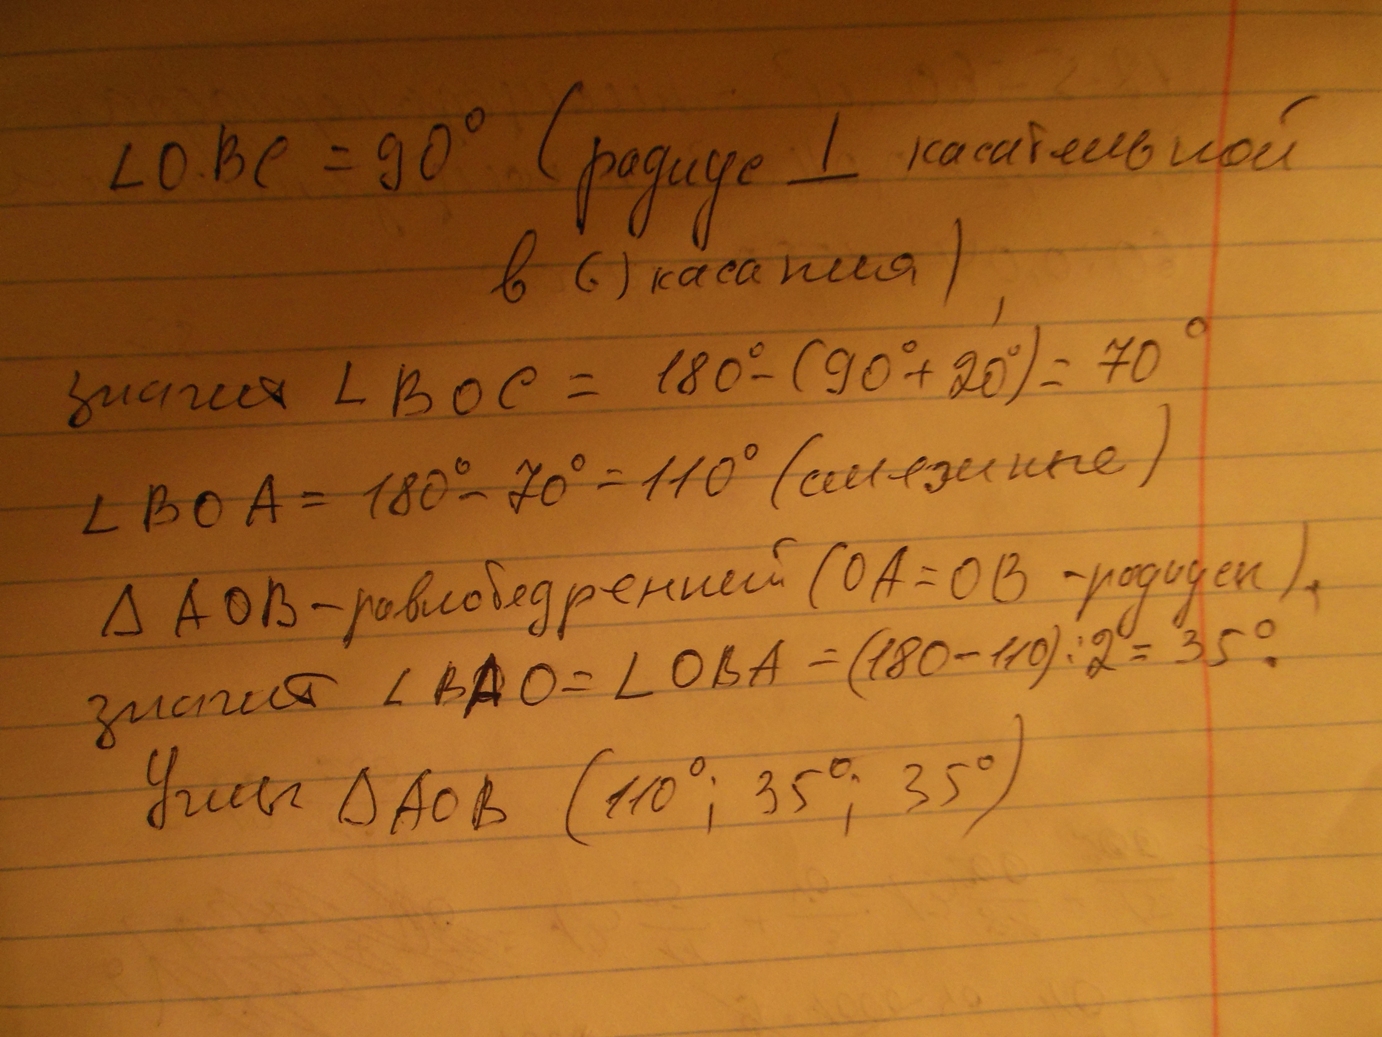 ∠OBC = 90° (радиус ⊥ касательной
в (·) касания),
значит ∠BOC = 180° - (90° + 20°) = 70°
∠BOA = 180° - 70° = 110° (смежные)
Δ AOB - равнобедренный (OA = OB - радиусы),
значит ∠BAO = ∠OBA = (180 - 110) : 2 = 35°.
Углы ΔAOB (110°; 35°; 35°)